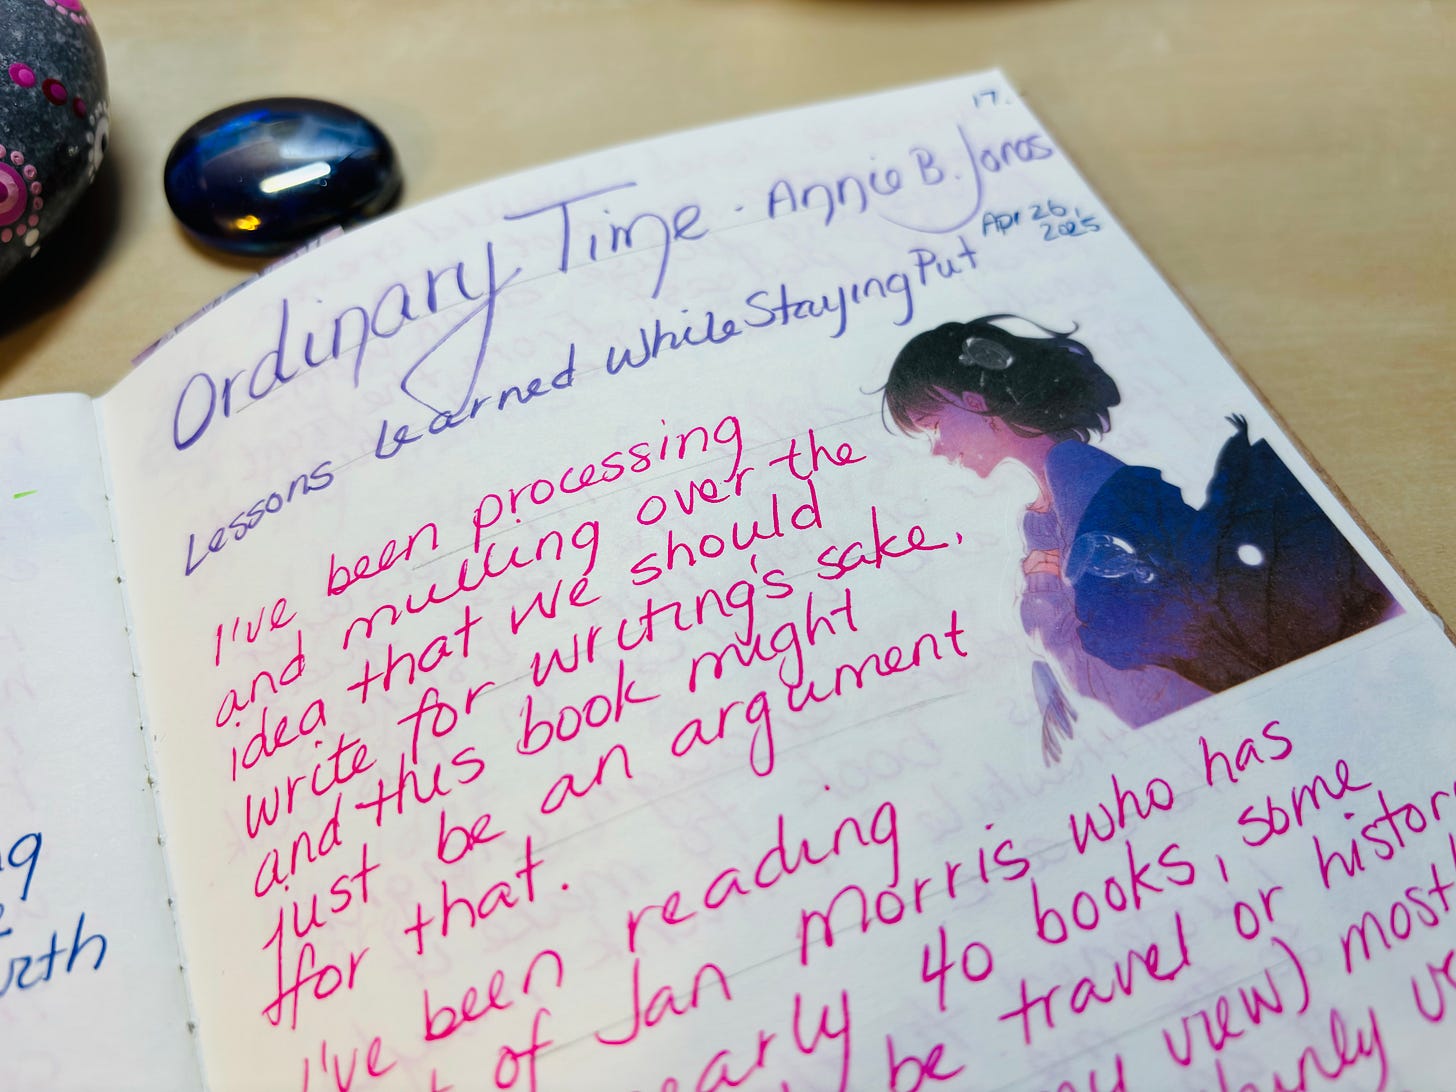 17.
Ordinary Time - Annie B. Jones
Apr 26,
2025
Lessons Learned While Staying Put
I've been processing
and mulling over the
idea that we should
write for writing's sake,
and this book might
just be an argument
for that.
I've been reading
of Jan Morris who has
early 40 books, some
be travel or histor
view) most